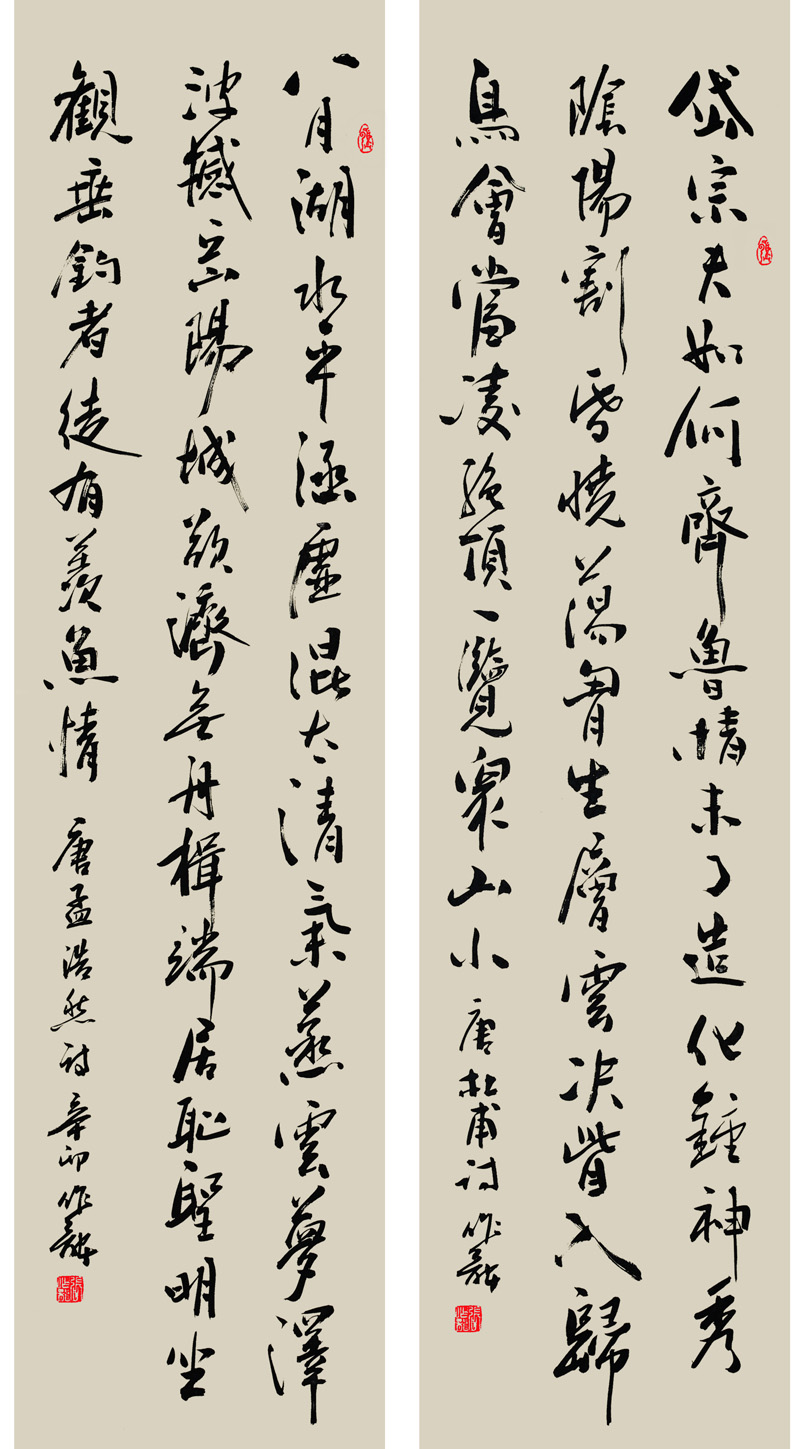 岱宗夫如何齊魯情未了造化鍾神秀
陰陽割昏曉蕩胷生層雲決眥入歸
鳥會當凌絕頂一覽眾山小 唐杜甫詩 作
八月湖水平涵虛混太清氣蒸雲夢澤
波撼岳陽城欲濟無舟楫端居恥聖明坐
觀垂釣者徒有羨魚情 唐孟浩然詩 辛卯 作